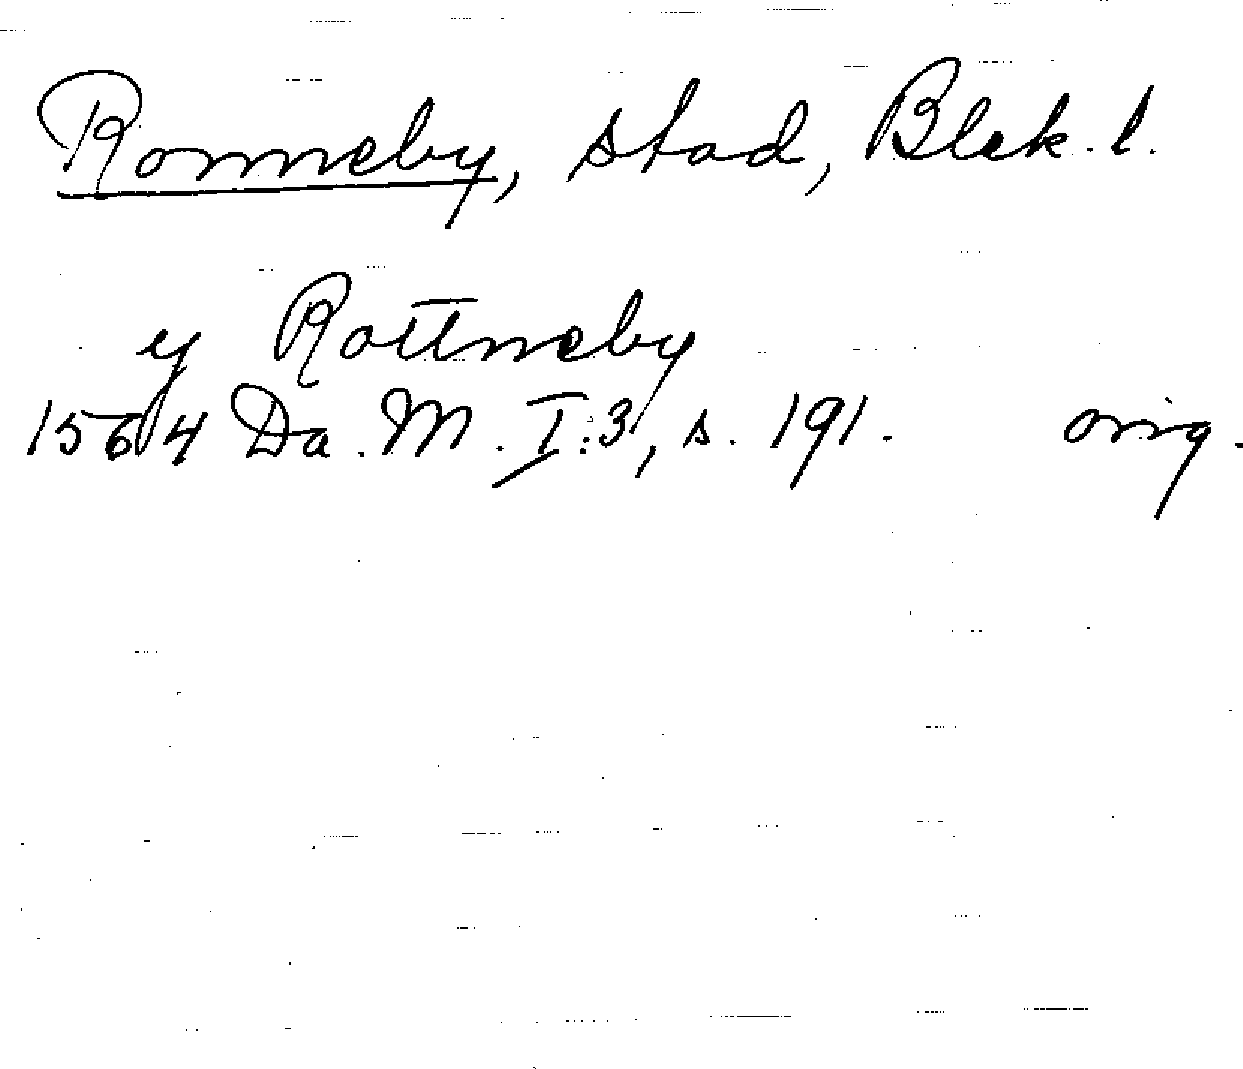 Ronneby, stad, Blek. l.
y Rottneby
1564 Da. M. I:3, s. 191. orig.